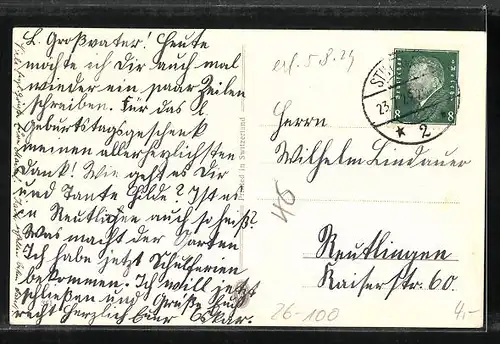 L. Großvater! Heute
möchte ich Dir auch mal
wieder ein paar Zeilen
schreiben. Für das l.
Geburtstagsgeschenk
meinen allerherzlichsten
Dank! Wie geht es Dir
und Tante Hilde? Ist es
in Reutlingen auch so heiß?
Was macht der Garten
Ich habe jetzt Schulferien
bekommen. Ich will jetzt
schließen und Grüße Euch
recht herzlich Euer Oskar.
Printed in Switzerland
5.8.29
Deutsches Reich
8 8
23.
* 2
Herrn
Wilhelm Lindauer
46
Reutlingen
Kaiserstr. 60.
26-100
4,-